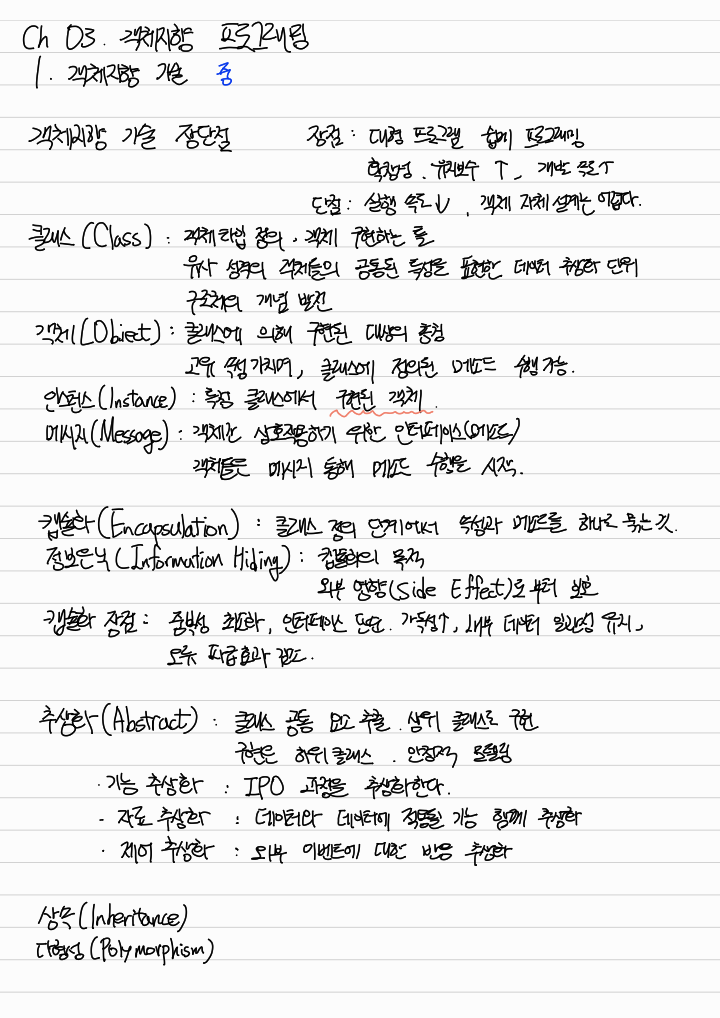 Ch 03. 객체지향 프로그래밍
1. 객체지향 기술 중
객체지향 기술 장단점 장점 : 대형 프로그램 쉽게 프로그래밍
확장성, 유지보수 ↑, 개발 속도↑
단점 : 실행 속도↓, 객체 자체 설계는 어렵다.
클래스 (Class) : 객체 타입 정의, 객체 구현하는 틀
유사 성격의 객체들의 공통된 특성을 표현한 데이터 추상화 단위
구조체의 개념 발전
객체(Object) : 클래스에 의해 구현된 대상의 총칭
고유 속성 가지며, 클래스에 정의된 메소드 수행 가능.
인스턴스(Instance) : 특정 클래스에서 구현된 객체.
메시지(Message) : 객체간 상호작용하기 위한 인터페이스(메소드)
객체들은 메시지 통해 메소드 수행을 시작.
캡슐화 (Encapsulation) : 클래스 정의 단계에서 속성과 메소드를 하나로 묶는 것.
정보은닉 (Information Hiding) : 캡슐화의 목적
외부 영향(Side Effect)로부터 보호
캡슐화 장점 : 중복성 최소화, 인터페이스 단순, 가독성↑, 내부 데이터 일관성 유지,
오류 파급효과 감소.
추상화 (Abstract) : 클래스 공통 요소 추출, 상위 클래스로 구현
구현은 하위클래스, 안정적 모델링
· 기능 추상화 : IPO 과정을 추상화한다.
- 자료 추상화 : 데이터와 데이터에 적용될 기능 함께 추상화
· 제어 추상화 : 외부 이벤트에 대한 반응 추상화
상속 (Inheritance)
다형성 (Polymorphism)